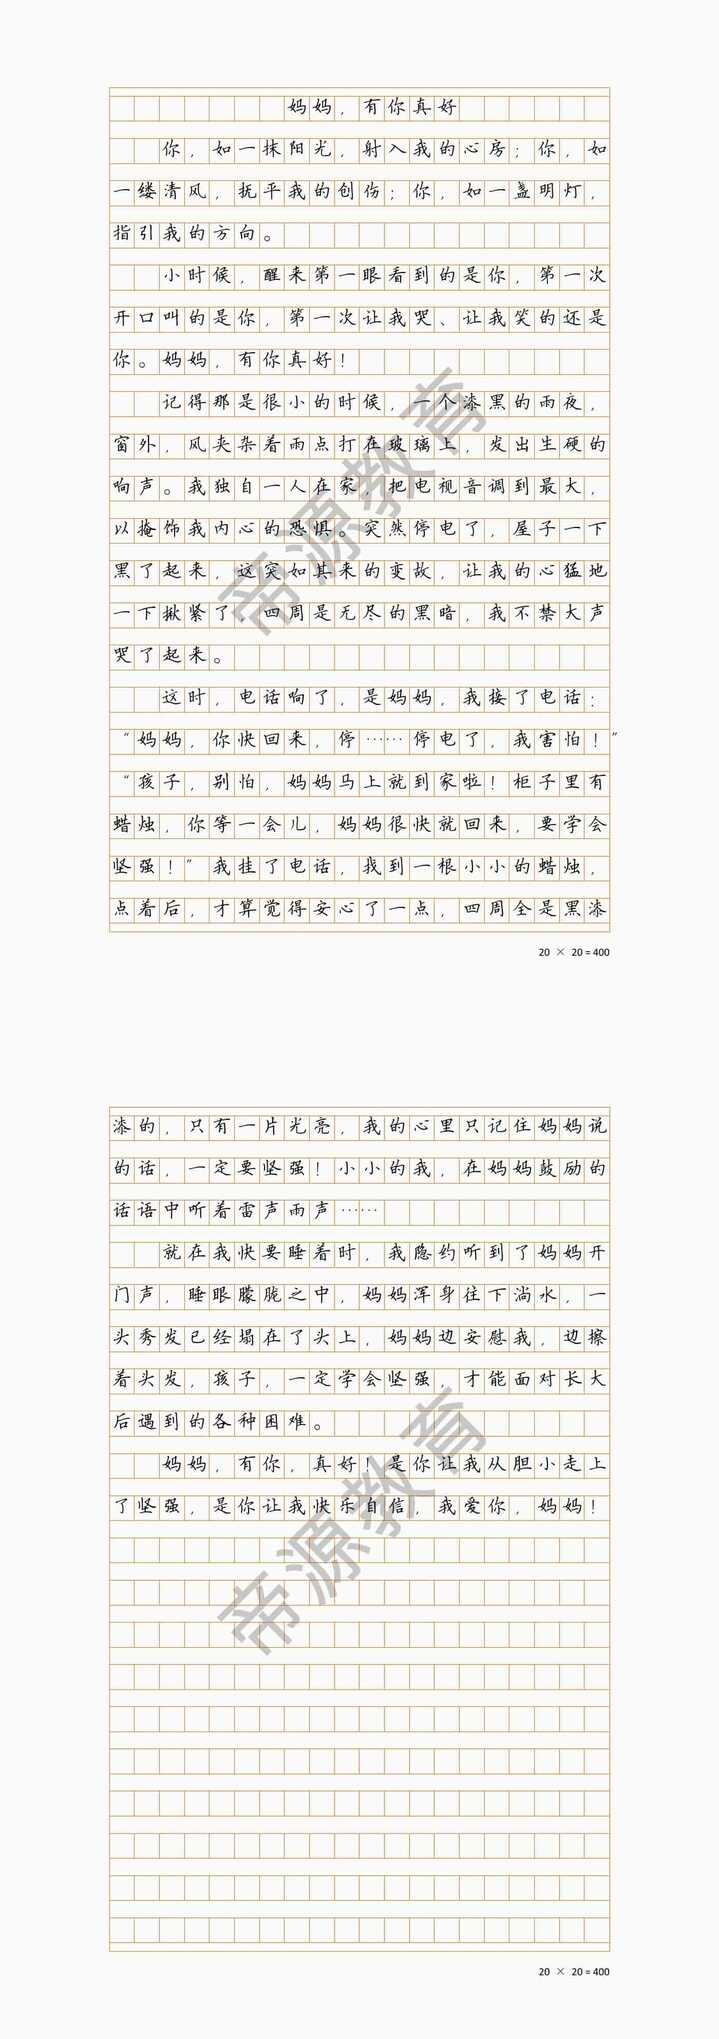 妈妈，有你真好
你，如一抹阳光，射入我的心房；你，如
一缕清风，抚平我的创伤；你，如一盏明灯，
指引我的方向。
小时候，醒来第一眼看到的是你，第一次
开口叫的是你，第一次让我哭、让我笑的还是
你。妈妈，有你真好！
记得那是很小的时候，一个漆黑的雨夜，
窗外，风夹杂着雨点打在玻璃上，发出生硬的
响声。我独自一人在家，把电视音调到最大，
以掩饰我内心的恐惧。突然停电了，屋子一下
黑了起来，这突如其来的变故，让我的心猛地
一下揪紧了，四周是无尽的黑暗，我不禁大声
哭了起来。
这时，电话响了，是妈妈，我接了电话：
“妈妈，你快回来，停……停电了，我害怕！”
“孩子，别怕，妈妈马上就到家啦！柜子里有
蜡烛，你等一会儿，妈妈很快就回来，要学会
坚强！”我挂了电话，找到一根小小的蜡烛，
点着后，才算觉得安心了一点，四周全是黑漆
20 × 20＝400
漆的，只有一片光亮，我的心里只记住妈妈说
的话，一定要坚强！小小的我，在妈妈鼓励的
话语中听着雷声雨声……
就在我快要睡着时，我隐约听到了妈妈开
门声，睡眼朦胧之中，妈妈浑身往下淌水，一
头秀发已经塌在了头上，妈妈边安慰我，边擦
着头发，孩子，一定学会坚强，才能面对长大
后遇到的各种困难。
妈妈，有你，真好！是你让我从胆小走上
了坚强，是你让我快乐自信，我爱你，妈妈！
20 × 20＝400
帝源教育
帝源教育